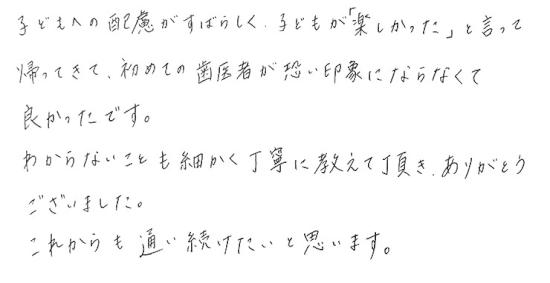 子どもへの配慮がすばらしく、子どもが「楽しかった」と言って
帰ってきて、初めての歯医者が恐い印象にならなくて
良かったです。
わからないことも細かく丁寧に教えて頂き、ありがとう
ございました。
これからも通い続けたいと思います。